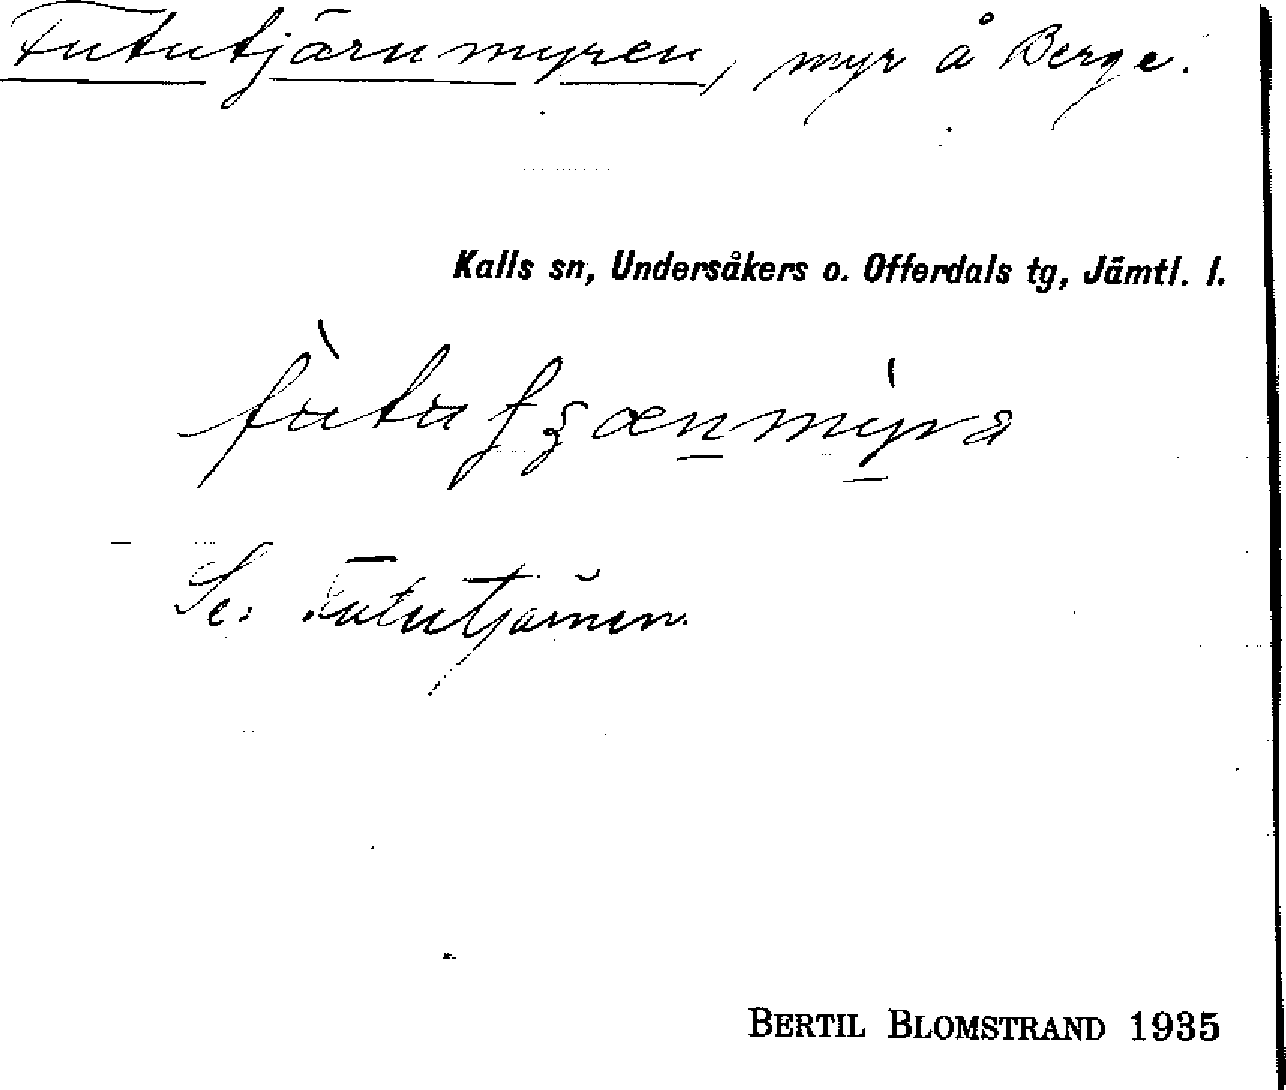 Fututjärnmyren, myr å Berge.
Kalls sn, Undersåkers o. Offerdals tg, Jämtl. l.
Se: Fututjärnen.
BERTIL BLOMSTRAND 1935